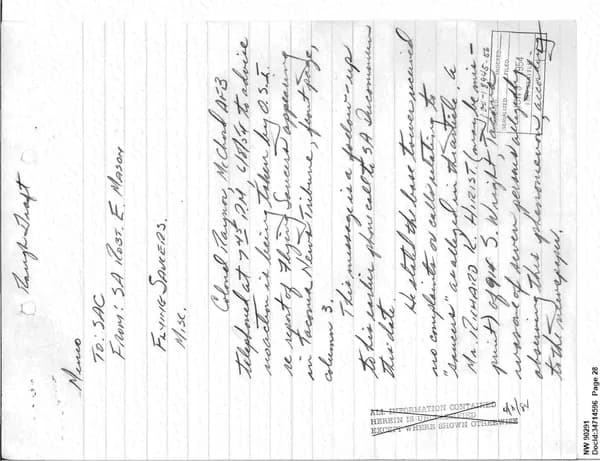 Rough Draft
Memo
TO: SAC
FROM: SA ROBT. E. MASON
FLYING SAUCERS
MISC.
Colonel Raynor, McChord AFB
telephoned at 7:45 PM, 6/8/54 to advise
no action is being taken by O.S.I.
re report of Flying Saucers appearing
in Tacoma News Tribune, front page,
column 3.
This message is a follow-up
to his earlier phone call to SA
this date.
He stated the base tower received
no complaints or calls relating to
"saucers" as alleged in the article, a
Mr. RICHARD R. HIRST (may be mis-
print) of 914 S. Wright, Tacoma
was one of seven persons allegedly
observing this "phenomenon", according
to the newspaper.
ALL INFORMATION CONTAINED
HEREIN IS UNCLASSIFIED
EXCEPT WHERE SHOWN OTHERWISE
NW 90291
DocId:34714596 Page 28